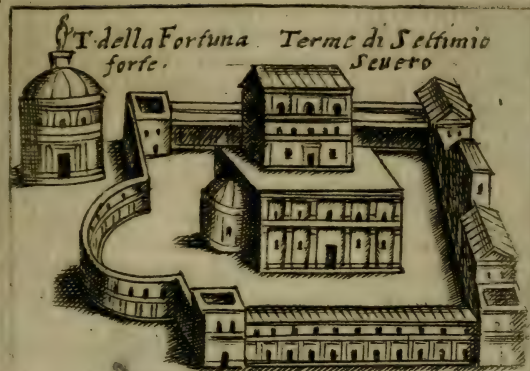 T. della Fortuna
forte.
Terme di Settimio
Seuero